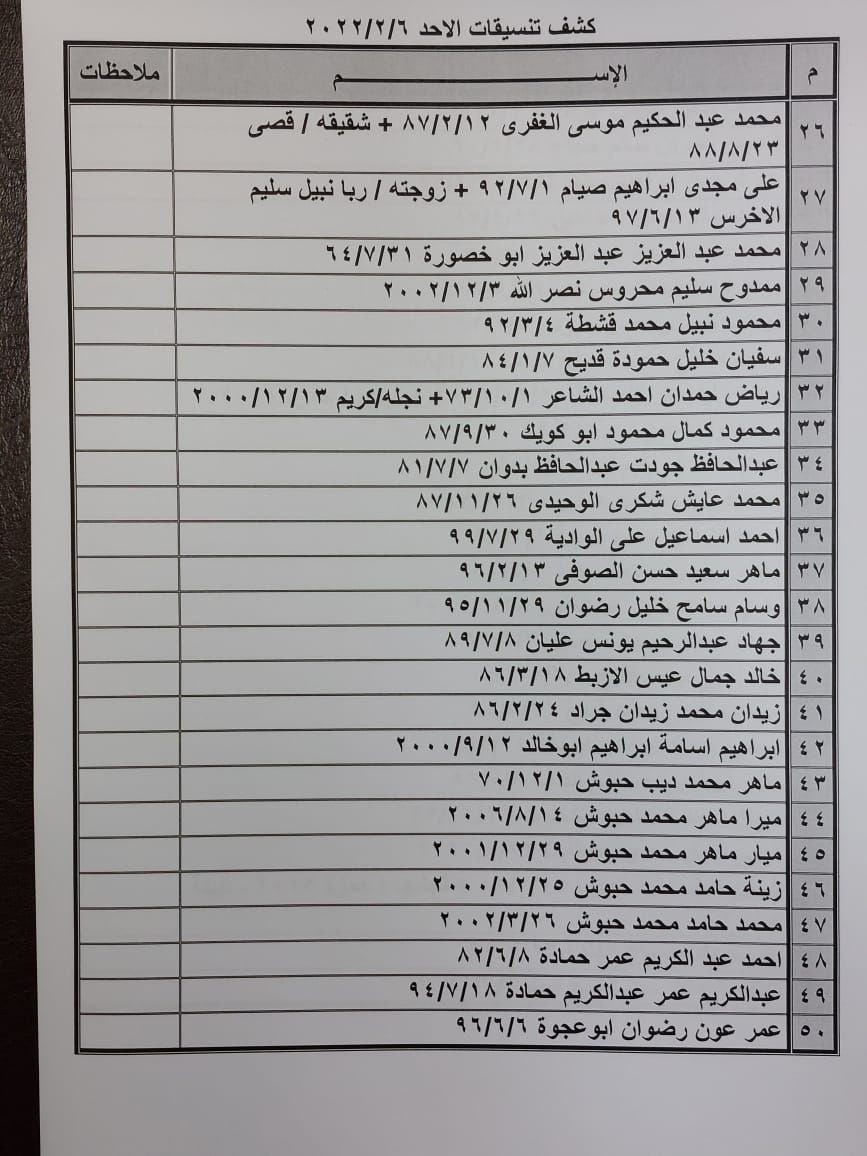 كشف تنسيقات الاحد ٢٠٢٢/٢/٦
م الإســـــــــــم ملاحظات
٢٦ محمد عبد الحكيم موسى الغفرى ٨٧/٢/١٢ + شقيقه / قصى
٨٨/٨/٢٣
٢٧ على مجدى ابراهيم صيام ٩٢/٧/١ + زوجته / ربا نبيل سليم
الاخرس ٩٧/٦/١٣
٢٨ محمد عبد العزيز عبد العزيز ابو خصورة ٦٤/٧/٣١
٢٩ ممدوح سليم محروس نصر الله ٢٠٠٢/١٢/٣
٣٠ محمود نبيل محمد قشطة ٩٢/٣/٤
٣١ سفيان خليل حمودة قديح ٨٤/١/٧
٣٢ رياض حمدان احمد الشاعر ٧٣/١٠/١+ نجله/كريم ٢٠٠٠/١٢/١٣
٣٣ محمود كمال محمود ابو كويك ٨٧/٩/٣٠
٣٤ عبدالحافظ جودت عبدالحافظ بدوان ٨١/٧/٧
٣٥ محمد عايش شكرى الوحيدى ٨٧/١١/٢٦
٣٦ احمد اسماعيل على الوادية ٩٩/٧/٢٩
٣٧ ماهر سعيد حسن الصوفى ٩٦/٢/١٣
٣٨ وسام سامح خليل رضوان ٩٥/١١/٢٩
٣٩ جهاد عبدالرحيم يونس عليان ٨٩/٧/٨
٤٠ خالد جمال عيس الازبط ٨٦/٣/١٨
٤١ زيدان محمد زيدان جراد ٨٦/٢/٢٤
٤٢ ابراهيم اسامة ابراهيم ابوخالد ٢٠٠٠/٩/١٢
٤٣ ماهر محمد ديب حبوش ٧٠/١٢/١
٤٤ ميرا ماهر محمد حبوش ٢٠٠٦/٨/١٤
٤٥ ميار ماهر محمد حبوش ٢٠٠١/١٢/٢٩
٤٦ زينة حامد محمد حبوش ٢٠٠٠/١٢/٢٥
٤٧ محمد حامد محمد حبوش ٢٠٠٢/٣/٢٦
٤٨ احمد عبد الكريم عمر حمادة ٨٢/٦/٨
٤٩ عبدالكريم عمر عبدالكريم حمادة ٩٤/٧/١٨
٥٠ عمر عون رضوان ابوعجوة ٩٦/٦/٦